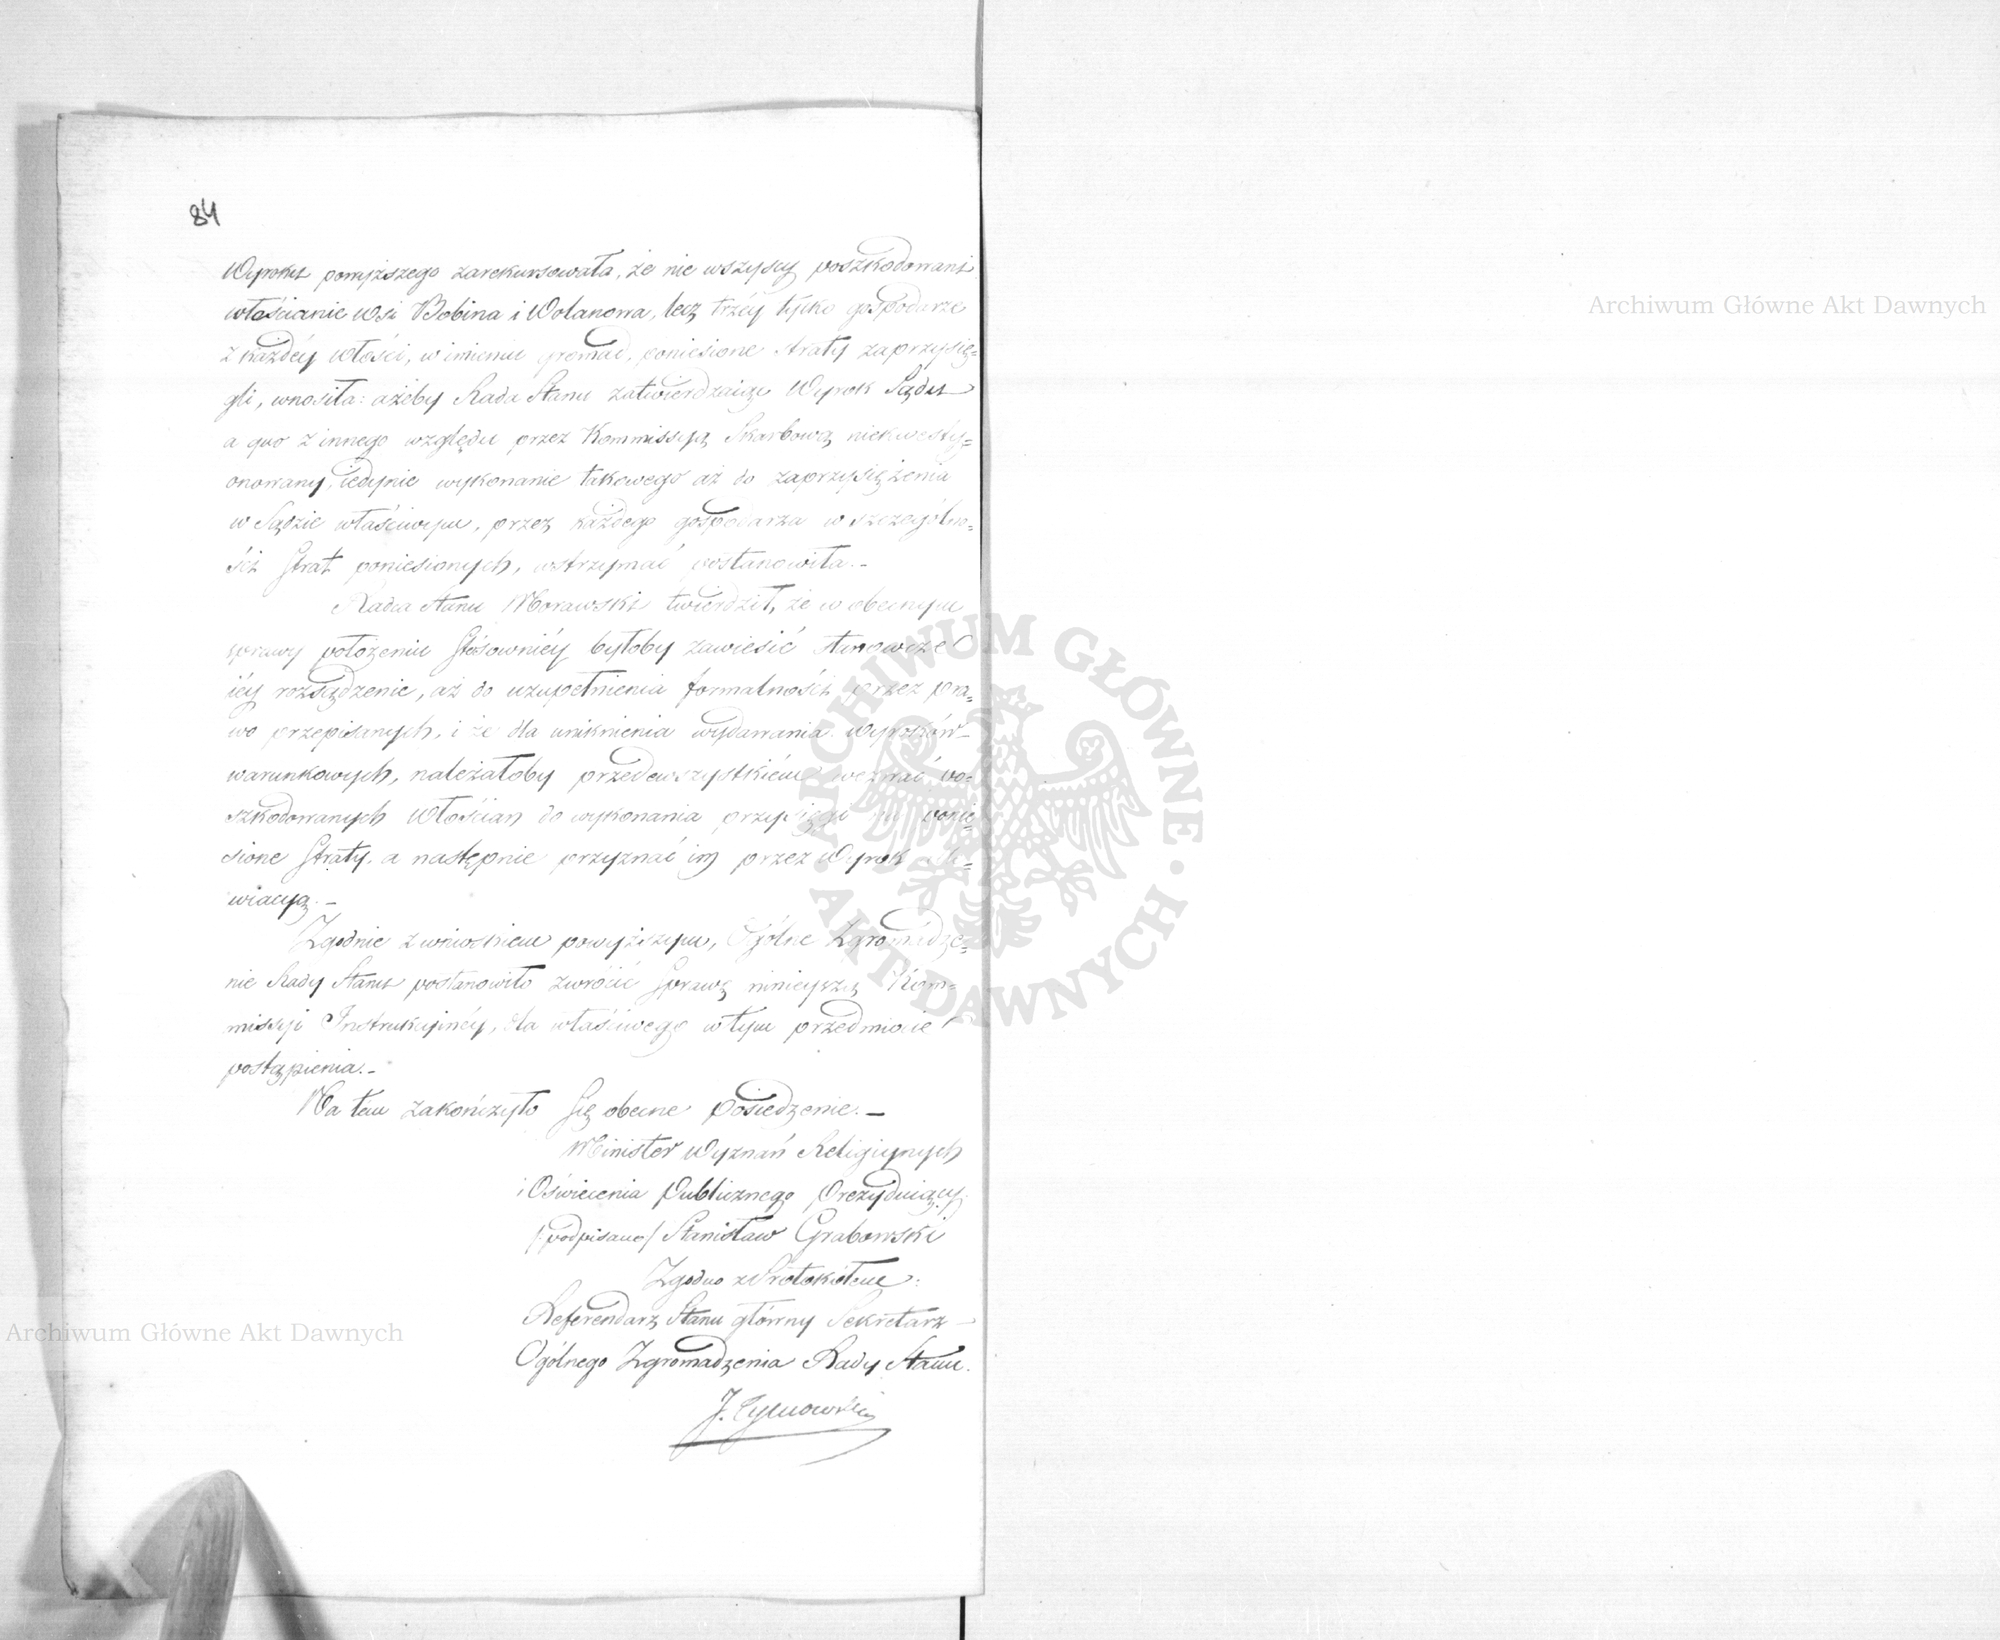 84
Wyroku powyższego zarekursowała, że nie wszyscy poszkodowani
włościanie wsi Bobina i Wolanowa, lecz trzéy tylko gospodarze
z każdéy włości, w imieniu gromad, poniesione straty zaprzysię=
gli, wnosiła: ażeby Rada Stanu zatwierdzaiąc Wyrok Sądu
a quo z innego względu przez Kommissyą Skarbową niekwesty=
onowany, iedynie wykonanie takowego aż do zaprzysiężenia
w Sądzie właściwym, przez każdego gospodarza w szczególno=
ści Strat poniesionych, wstrzymać postanowiła.–
Radca Stanu Morawski twierdził, że w obecnym
sprawy położeniu stósowniéy byłoby zawiesić stanowcze
iéy rozsądzenie, aż do uzupełnienia formalności przez pra=
wo przepisanych, i że dla uniknienia wydawania Wyroków
warunkowych, należałoby przedewszystkiém wezwać po=
szkodowanych Włościan do wykonania przysięgi na ponie=
sione Straty, a następnie przyznać im przez Wyrok
wiacyą.–
Zgodnie z wnioskiem powyższym, Ogólne Zgromadze=
nie Rady Stanu postanowiło zwrócić Sprawę ninieyszą Kom=
missyi Instrukcyinéy, dla właściwego w tym przedmiocie
postąpienia.–
Na tem zakończyło się obecne posiedzenie.–
Minister Wyznań Religiynych
i Oświecenia Publicznego Prezyduiący.
/podpisano/ Stanisław Grabowski
Zgodno z Protokółem:
Referendarz Stanu główny Sekretarz
Ogólnego Zgromadzenia Rady Stanu.
J. Tymowski
Archiwum Główne Akt Dawnych
Archiwum Główne Akt Dawnych
ARCHIWUM GŁÓWNE · AKT DAWNYCH ·